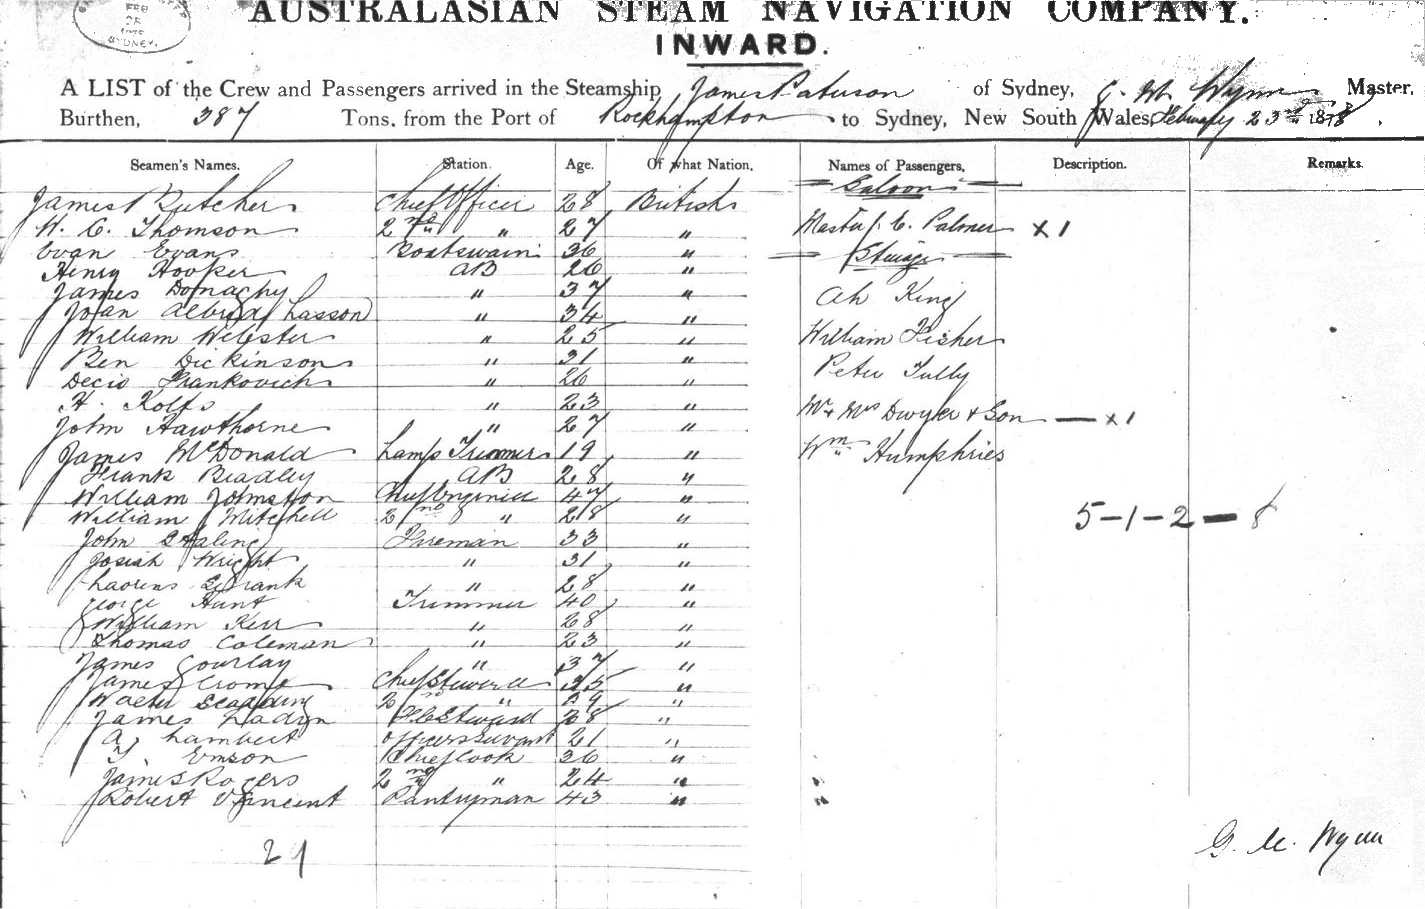 AUSTRALASIAN STEAM NAVIGATION COMPANY.
INWARD.
A LIST of the Crew and Passengers arrived in the Steamship James Paterson of Sydney, G. M. Wynn Master,
Burthen, 387 Tons, from the Port of Rockhampton to Sydney, New South Wales, February 23rd 1878.
Seamen's Names. Station. Age. Of what Nation. Names of Passengers. Description. Remarks.
Saloon
James Butcher Chief Officer 28 British
W. C. Thomson 2nd " 27 " Master J. C. Palmer x 1
Evan Evans Boatswain 36 " Steerage
Henry Hooper AB 26 "
James Donaghy " 37 " Ah King
Johan Lasson " 34 "
William Webster " 25 " William Fisher
Ben Dickinson " 31 "
Decio Frankovich " 26 " Peter Tully
H. Kolfs " 23 "
John Hawthorne " 27 " Mr & Mrs Dwyer & Son — x 1
James McDonald Lamp Trimmer 19 " Wm Humphries
Frank Bradley AB 28 "
William Johnston Chief Engineer 47 "
William Mitchell 2nd " 28 " 5-1-2-8
John Fireman 33 "
Josiah Wright " 31 "
" 28 "
George Hunt Trimmer 40 "
William Kerr " 28 "
Thomas Coleman " 23 "
James Gourlay " 37 "
James Crome Chief Steward 35 "
Walter 2nd " 29 "
James Steward 28 "
A. Lambert Officers Servant 21 "
T. Emson Chief Cook 36 "
James Rogers 2nd " 24 "
Robert Vincent Pantryman 43 "
29
G. M. Wynn